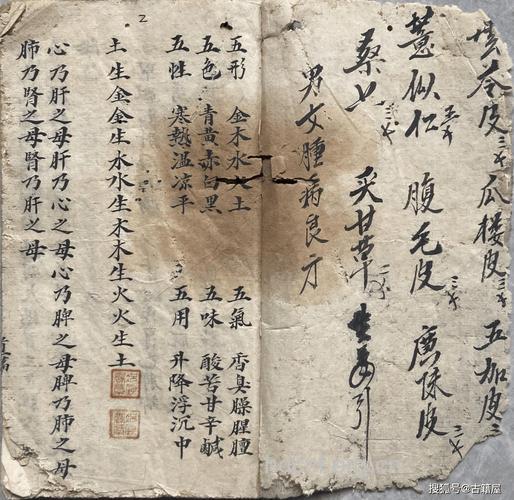 苓皮 三 瓜楼皮 三 五加皮 三
薏似仁 五 腹毛皮 三 廣陳皮 三
桑 三 炙甘草 引
男女腫病良方
五形 金木水火土 五氣 香臭臊腥膻
五色 青黄赤白黑 五味 酸苦甘辛鹹
五性 寒熱温凉平 五用 升降浮沉中
土生金金生水水生木木生火火生土
心乃肝之母肝乃心之母心乃脾之母脾乃肺之母
肺乃腎之母腎乃肝之母
2
搜狐号@古籍屋